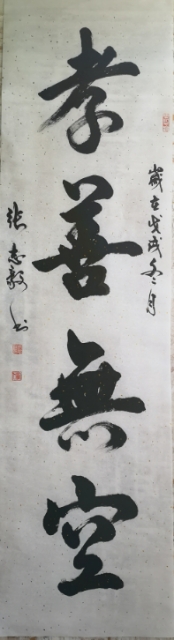 孝善無空
歲在戊戌冬月
張志毅书